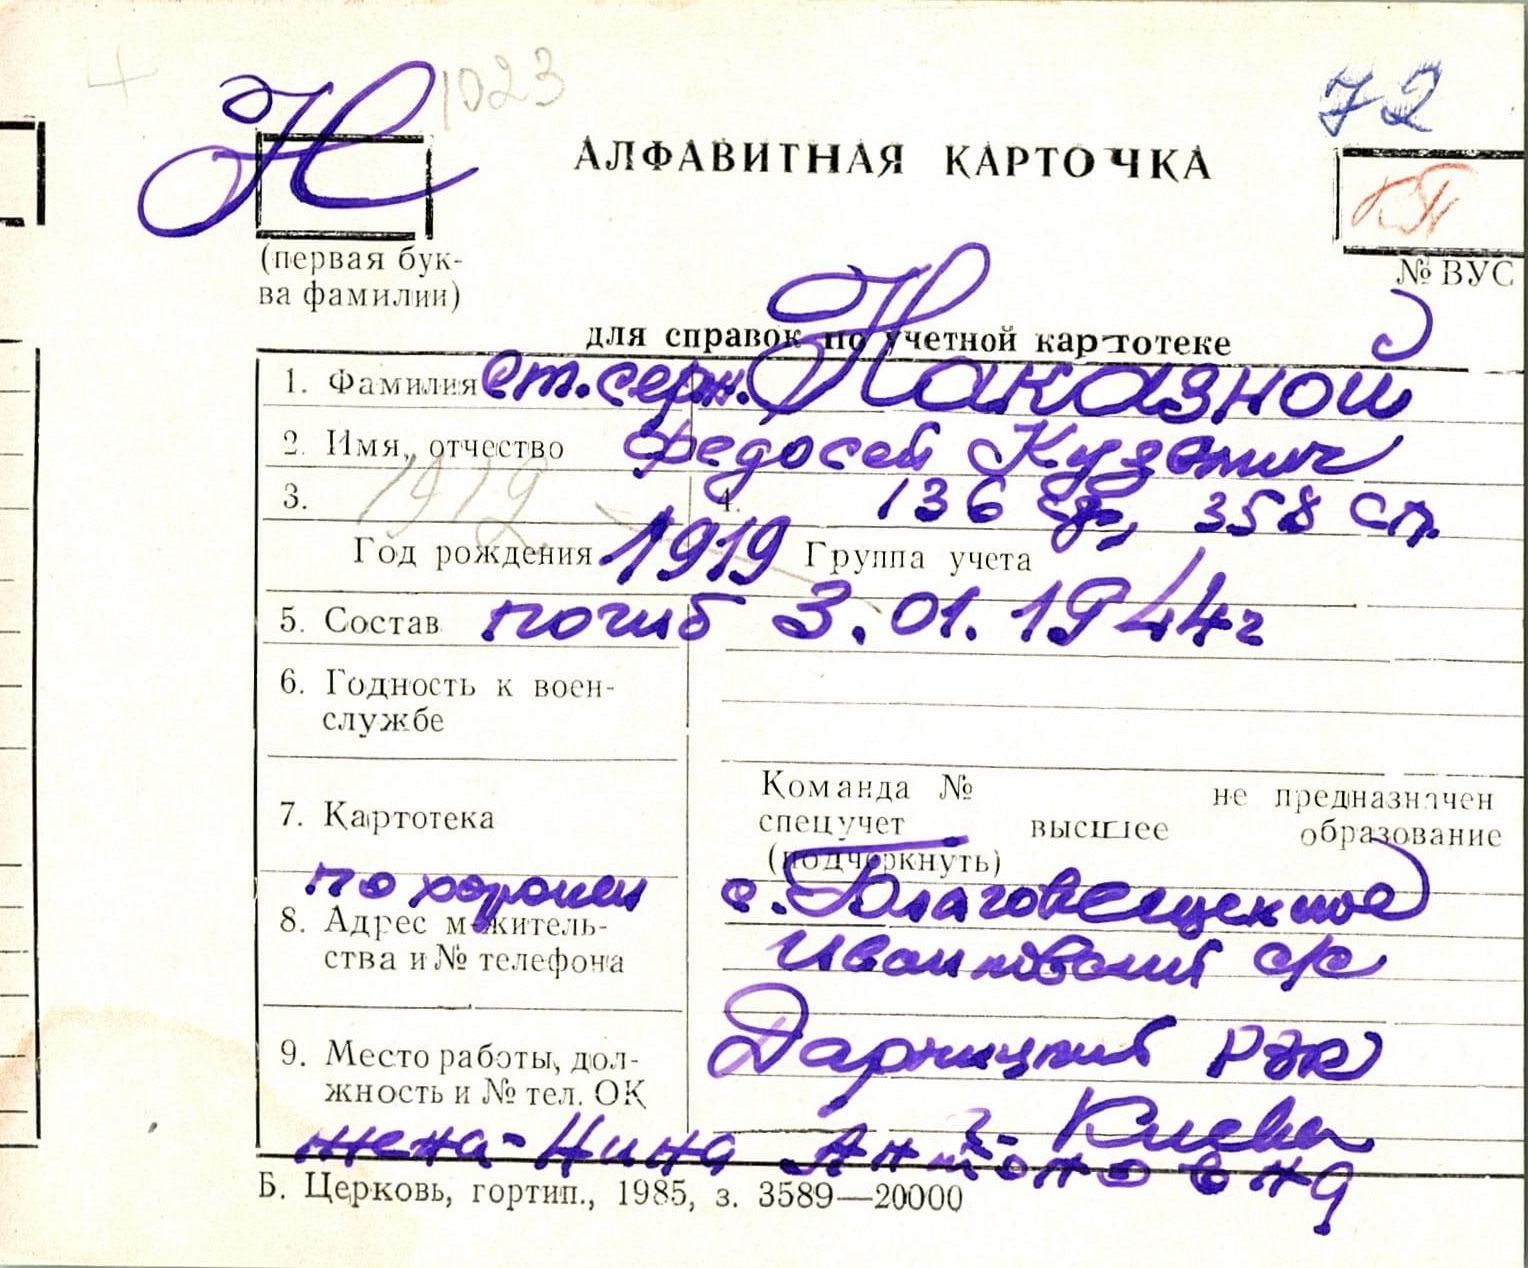 1023
72
Н
АЛФАВИТНАЯ КАРТОЧКА
(первая бук-
ва фамилии)
№ ВУС
для справок по учетной картотеке
1. Фамилия ст.серж. Наказной
2. Имя, отчество Федосей Кузьмич
3. 1912 4. 136 сд, 358 сп.
Год рождения 1919 Группа учета
5. Состав погиб 3.01.1944г
6. Годность к воен-
службе
Команда № не предназначен
7. Картотека
спецучет высшее образование
(подчеркнуть)
похоронен с. Благовещенское
8. Адрес м житель-
ства и № телефона
Ивановский с/с
9. Место работы, дол-
жность и № тел. ОК
Дарницкий РВК
г. Киева
жена - Нина Антоновна
Б. Церковь, гортип., 1985, з. 3589—20000